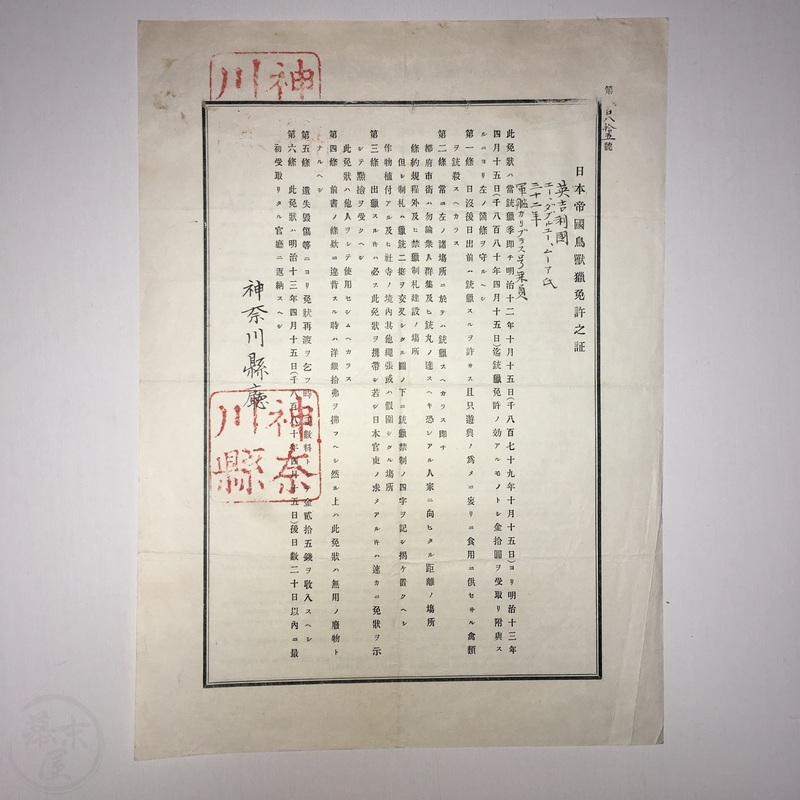 第 百八拾五號
日本帝國鳥獸獵免許之証
英吉利國
エー、ダブルユー、ムーア氏
三十二年
軍艦カリブデス号乗員
此免狀ハ當銃獵季即チ明治十二年十月十五日(千八百七十九年十月十五日)ヨリ明治十三年
四月十五日(千八百八十年四月十五日)迄銃獵免許ノ効アルモノトシ金拾圓ヲ受取リ附與ス
ルニヨリ左ノ箇條ヲ守ルヘシ
第一條 日沒後日出前ハ銃獵スルヲ許サス且只遊興ノ爲メニ妄リニ食用ニ供セサル禽類
ヲ銃殺スヘカラス
第二條 常ニ左ノ諸塲所ニ於テハ銃獵スヘカラス即チ
都府市街ハ勿論衆人群集及ヒ銃丸ノ達スヘキ恐レアル人家ニ向ヒタル距離ノ塲所
條約規程外及ヒ禁獵制札建設ノ塲所
但シ制札ハ獵銃二挺ヲ交叉シタル圖ノ下ニ銃獵禁制ノ四字ヲ記シ揭ケ置クヘシ
作物植付アル及ヒ社寺ノ境內其他繩張或ハ假圍シタル塲所
第三條 出獵スル片ハ必ス此免狀ヲ携帶シ若シ日本官吏ノ求メアル片ハ速カニ免狀ヲ示
シテ點撿ヲ受クヘシ
此免狀ハ他人ヲシテ使用セシムヘカラス
第四條 前書ノ條欵ニ違背スル時ハ洋銀拾弗ヲ拂フヘシ然ル上ハ此免狀ハ無用ノ廢物ト
ナルヘシ
第五條 遺失毀傷等ニヨリ免狀再渡ヲ乞フ時 手數料 金貳拾五錢ヲ收入スヘシ
第六條 此免狀ハ明治十三年四月十五日(千八百八十年四月十五日)後日數二十日以內ニ最
初受取リタル官廳ニ返納スヘシ
神奈川縣廳
神奈川縣
神川
幕末屋